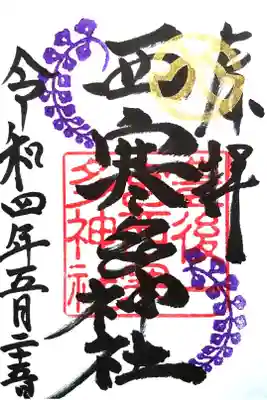 奉拝
西寒多神社
豊後一
宮西寒
多神社
令和四年五月二十五日